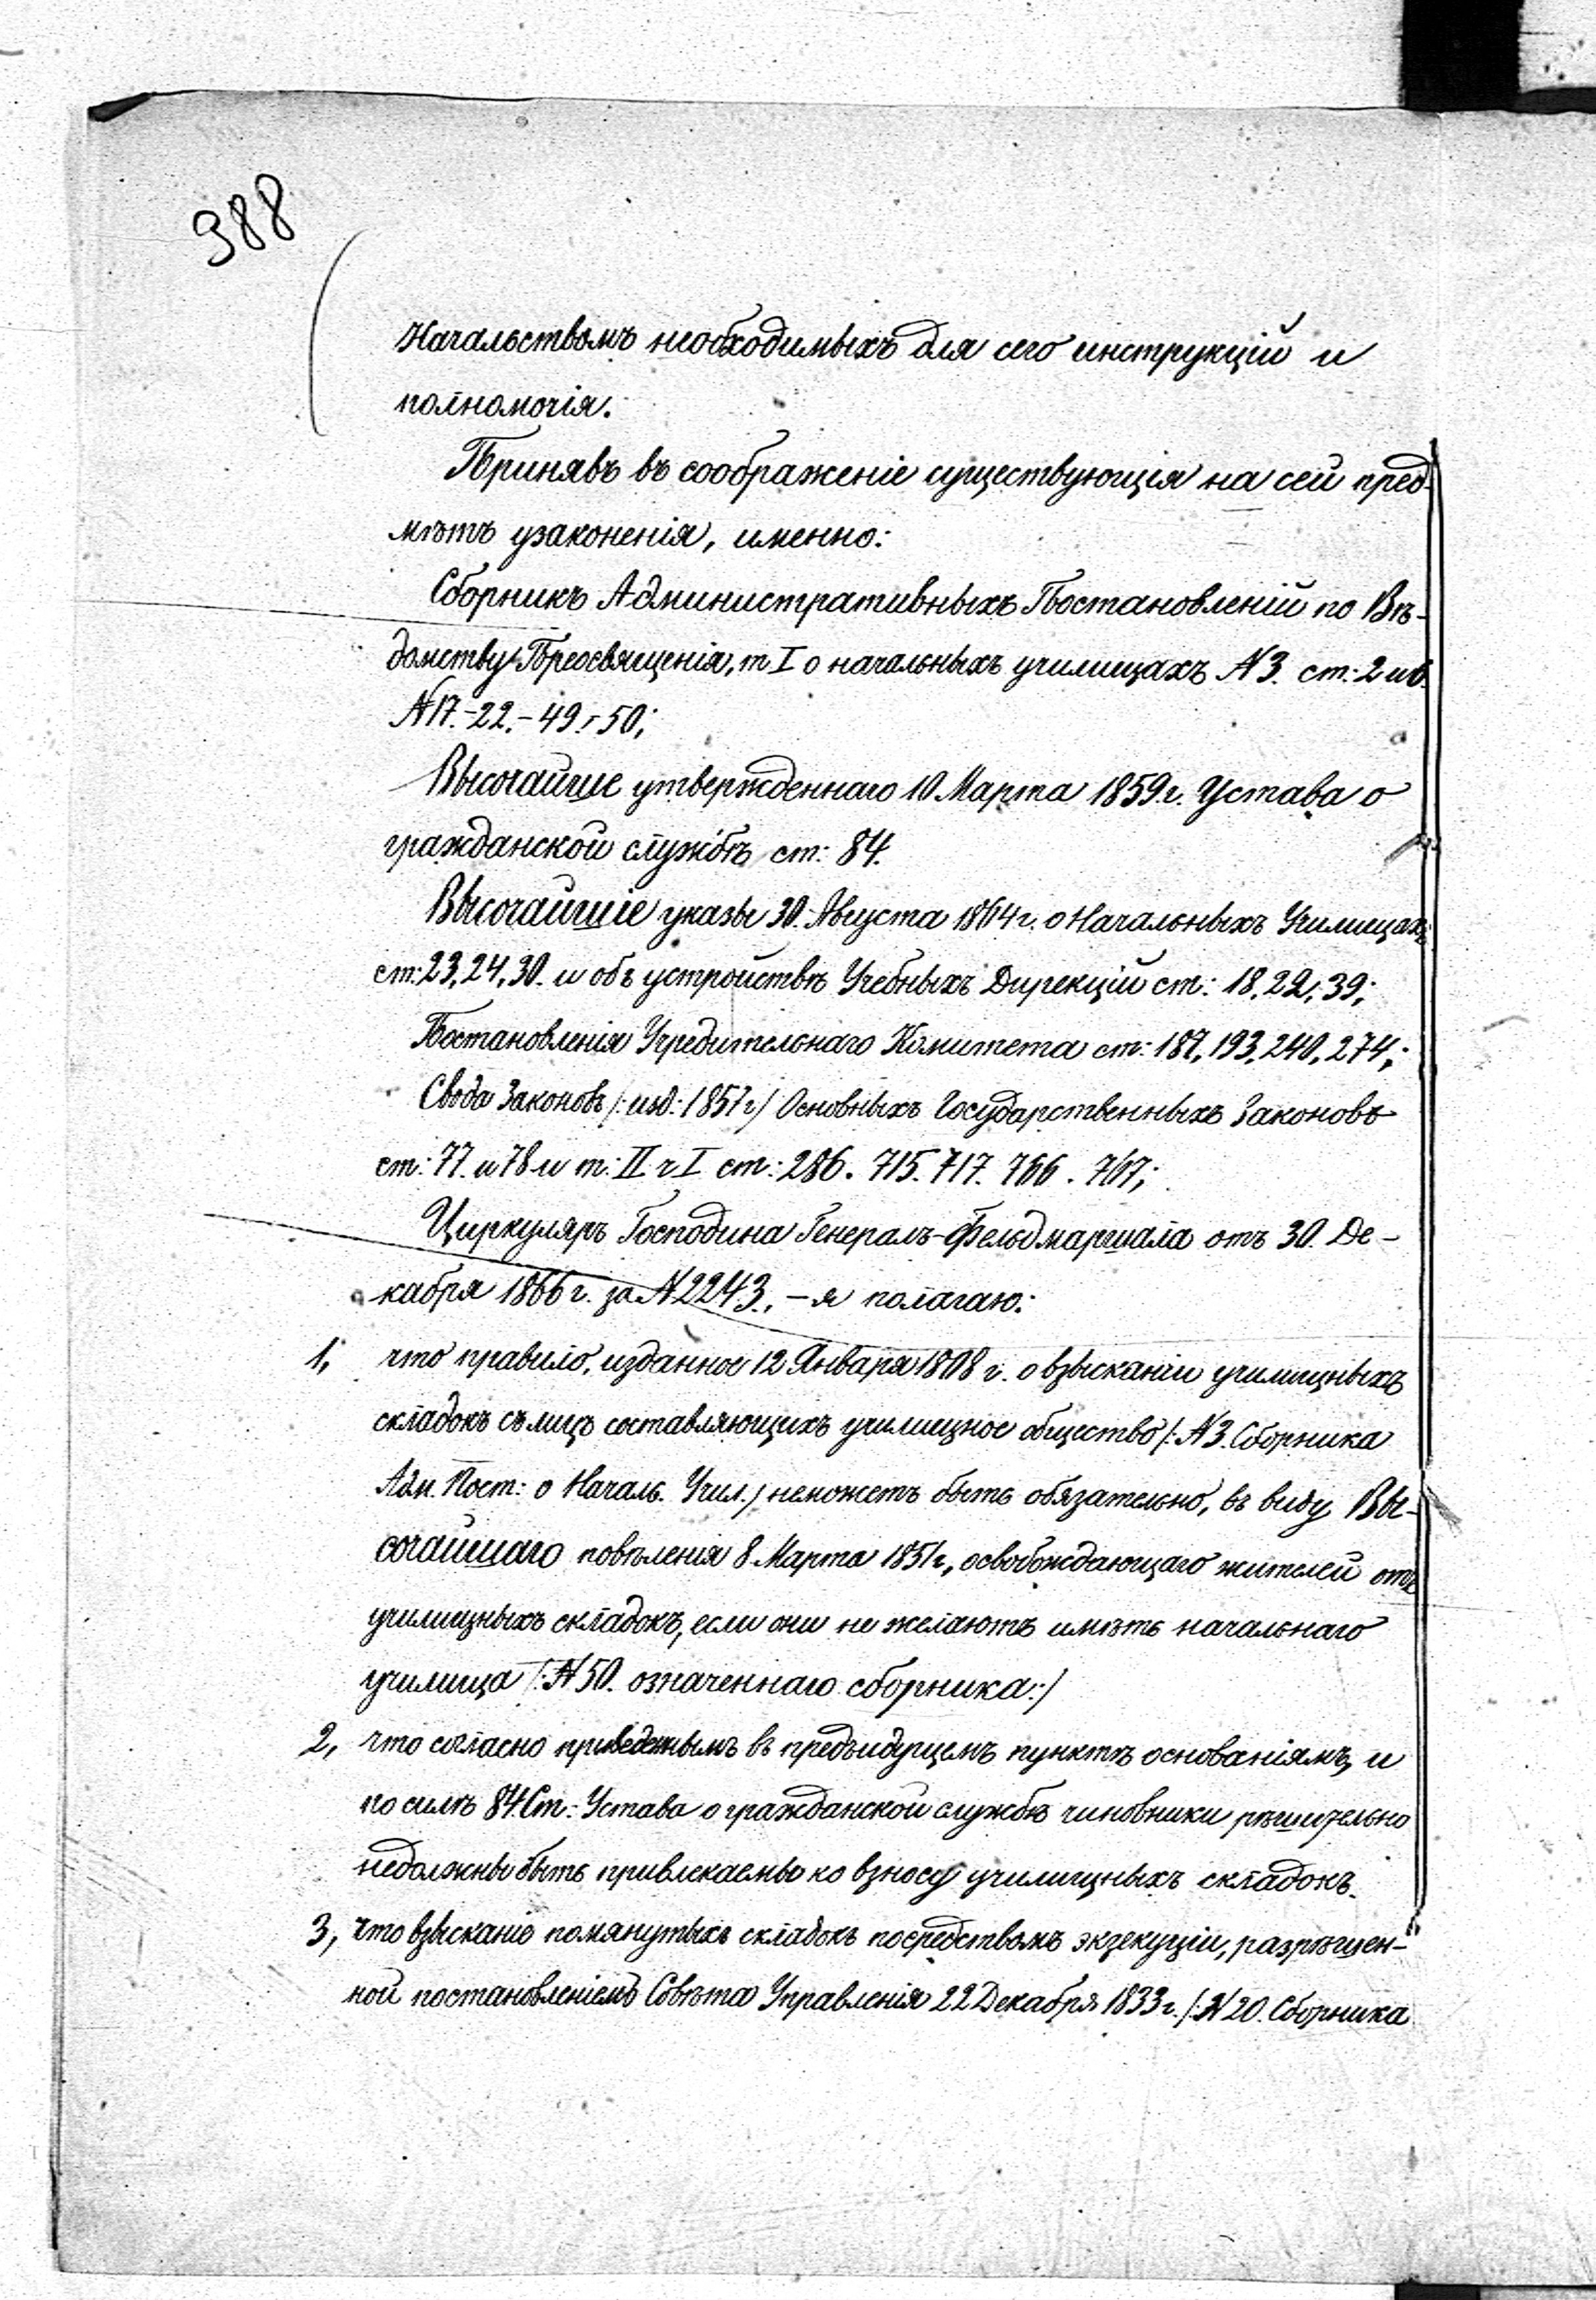 388
Начальствомъ необходимыхъ для сего инструкцій и
полномочія.
Принявъ въ соображеніе существующія на сей пред-
мѣтъ узаконенія, именно:
Сборникъ Административныхъ Постановленій по Вѣ-
домству Просвященія, т I о начальныхъ училищахъ N 3. ст: 2 и 6.
N 17.-22.-49.-50;
Высочайше утвержденнаго 10 Марта 1859 г. Устава о
гражданской службѣ ст: 84.
Высочайшіе указы 30. Августа 1864 г. о Начальныхъ Училищахъ
ст: 23, 24, 30. и объ устройствѣ Учебныхъ Дирекцій ст: 18, 22, 39;
Постановленія Учредительнаго Комитета ст: 187, 193, 240, 274;
Свода Законовъ /: изд: 1857 г/ Основныхъ Государственныхъ Законовъ
ст: 77. и 78 и т: II ч I ст: 286. 715. 717. 766. 767;
Циркуляръ Господина Генералъ-Фельдмаршала отъ 30. Де-
кабря 1866 г. за N 2243, - я полагаю:
1, что правило, изданное 12 Января 1808 г. о взысканіи училищныхъ
складокъ съ лицъ составляющихъ училищное общество /: N 3. Сборника
Адм. Пост: о Началь. Учил./ неможетъ быть обязательно, въ виду Вы-
сочайшаго повѣленія 8 Марта 1851 г., освобождающаго жителей отъ
училищныхъ складокъ, если они не желаютъ имѣть начальнаго
училища /: N 50. означеннаго сборника:/
2, что согласно приведеннымъ въ предъидущемъ пунктѣ основаніямъ, и
по силѣ 84 Ст: Устава о гражданской службѣ чиновники рѣшительно
недолжны быть привлекаемы ко взносу училищныхъ складокъ.
3, что взысканіе помянутыхъ складокъ посредствомъ экзекуціи, разрѣшен-
ной постановленіемъ Совѣта Управленія 22 Декабря 1833 г. /: N 20. Сборника